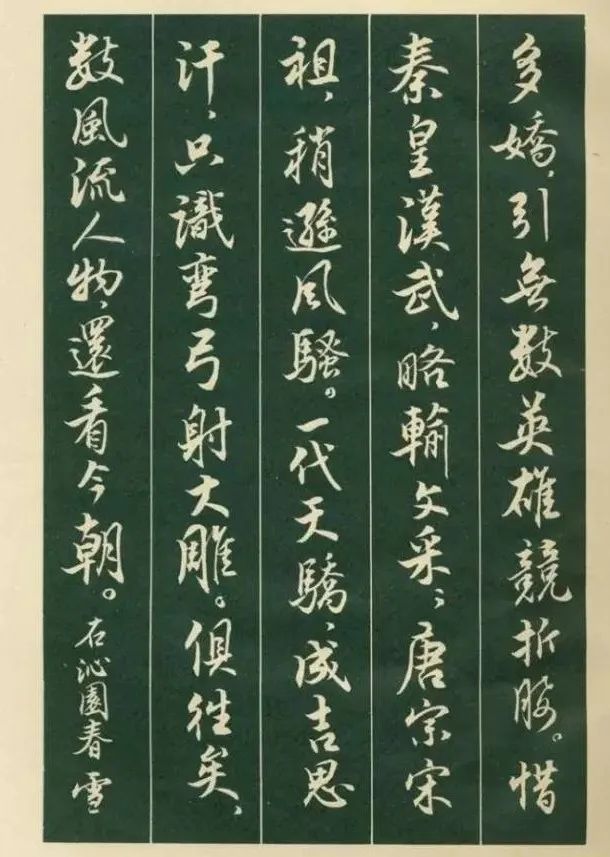 多嬌，引無數英雄競折腰。惜
秦皇漢武，略輸文采；唐宗宋
祖，稍遜風騷。一代天驕，成吉思
汗，只識彎弓射大雕。俱往矣，
數風流人物，還看今朝。
右沁園春雪